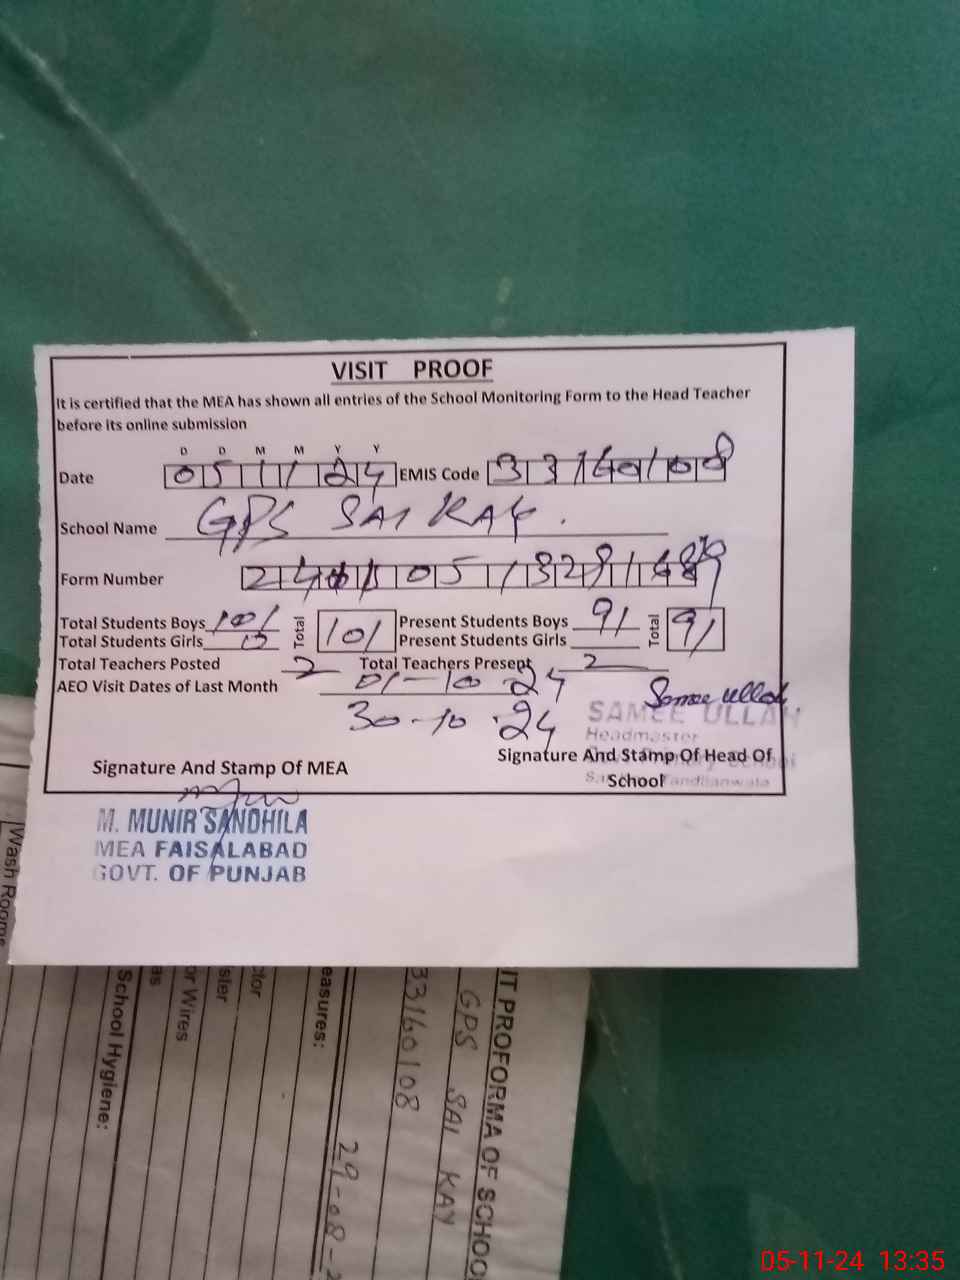 VISIT PROOF
It is certified that the MEA has shown all entries of the School Monitoring Form to the Head Teacher
before its online submission
D D M M Y Y
Date 05 11 24 EMIS Code 33160108
School Name GPS SAI KAY.
Form Number
Total Students Boys 101 Total 101 Present Students Boys 91 Total 91
Total Students Girls 0 Present Students Girls
Total Teachers Posted 2 Total Teachers Present 2
AEO Visit Dates of Last Month 01-10-24
30-10-24
Samee ullah
SAMEE ULLAH
Headmaster
Signature And Stamp Of MEA
Signature And Stamp Of Head Of
School
Tandlianwala
M. MUNIR SANDHILA
MEA FAISALABAD
GOVT. OF PUNJAB
IT PROFORMA OF SCHOO
GPS SAI KAY
33160108
29-08-2
easures:
ctor
ster
or Wires
as
School Hygiene:
Wash Rooms
05-11-24 13:35